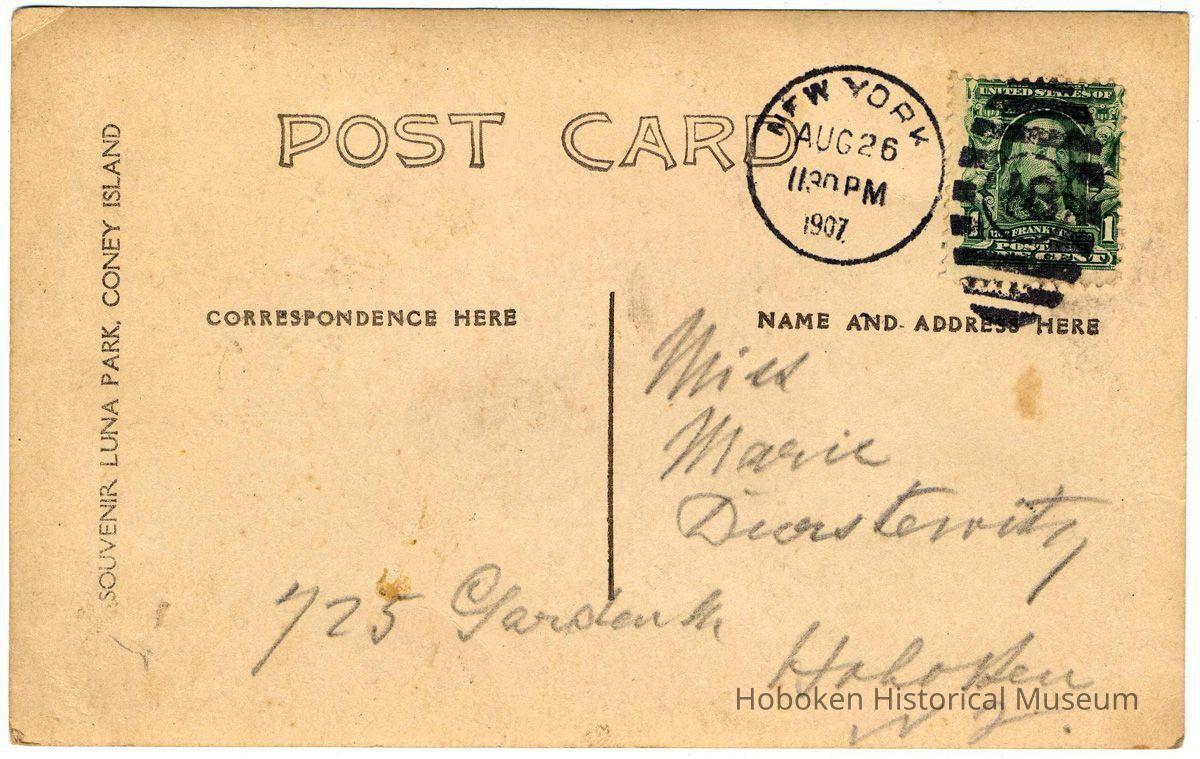 POST CARD
NEW YORK
AUG 26
1130 PM
1907
UNITED STATES OF
1 1
FRANKLIN
POSTAGE
ONE CENT
SOUVENIR LUNA PARK, CONEY ISLAND
CORRESPONDENCE HERE
NAME AND ADDRESS HERE
Miss
Marie
725 Garden St
Hoboken
N. J.
Hoboken Historical Museum